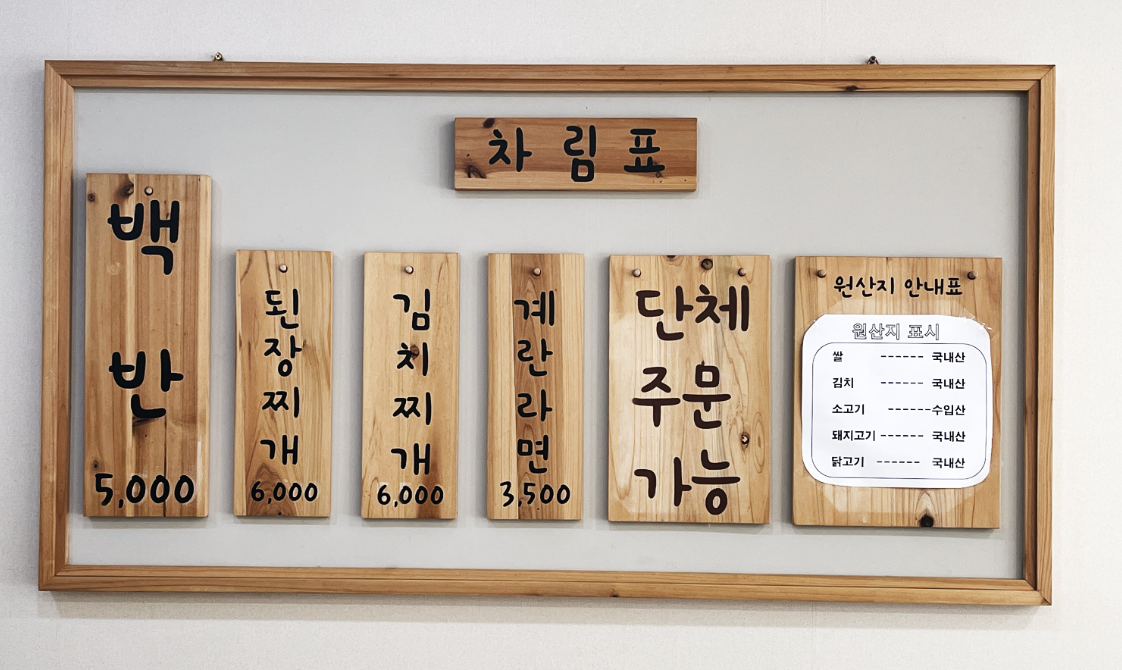 차림표
백반
5,000
된장찌개
6,000
김치찌개
6,000
계란라면
3,500
단체
주문
가능
원산지 안내표
원산지 표시
쌀 ------ 국내산
김치 ------ 국내산
소고기 ------수입산
돼지고기 ------ 국내산
닭고기 ------ 국내산